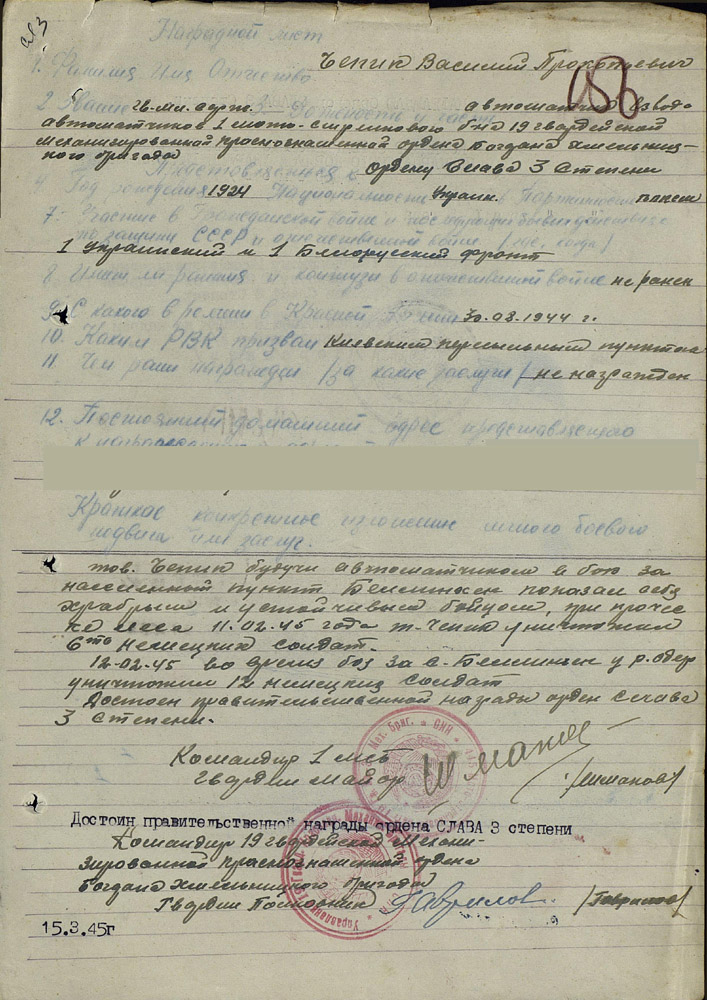 Наградной лист
1. Фамилия Имя Отчество Чепик Василий Прокопьевич
2. Звание гв. мл. серж. 3. Должность и часть автоматчик взвода
автоматчиков 1 мото-стрелкового б-на 19 гвардейской
механизированной краснознаменной ордена Богдана Хмельниц-
кого бригады
Представляется к ордену Слава 3 Степени
4. Год рождения 1924 Национальность Украин. Партийность
7. Участие в Гражданской войне и последующих боевых действиях
по защите СССР и отечественной войне (где, когда)
1 Украинский и 1 Белорусский фронт
8. Имеет ли ранения и контузии в отечественной войне не ранен
9. С какого времени в Красной Армии 30.08.1944 г.
10. Каким РВК призван Киевским пересыльным пунктом
11. Чем ранее награжден (за какие заслуги) не награжден
12. Постоянный домашний адрес представляемого
к награждению
Краткое конкретное изложение личного боевого
подвига или заслуг.
тов. Чепик будучи автоматчиком в бою за
населенный пункт показал себя
храбрым и устойчивым бойцом, при прочес
ке леса 11.02.45 года т. Чепик уничтожил
6ть немецких солдат.
12-02-45 во время боя за с. у р. Одер
уничтожил 12 немецких солдат
Достоин правительственной награды орден Слава
3 Степени.
Командир 1 мсб
Гвардии майор /Шманов/
Достоин правительственной награды ордена СЛАВА 3 степени
Командир 19 гвардейской Механи-
зированной краснознаменной ордена
Богдана Хмельницкого бригады
Гвардии Полковник Гаврилов /Гаврилов/
15.3.45г